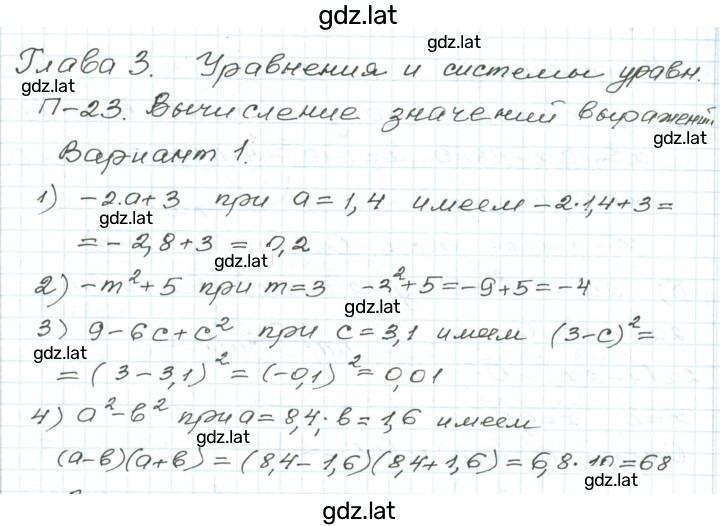 gdz.lat
gdz.lat
Глава 3. Уравнения и системы уравн.
gdz.lat
П-23. Вычисление значений выражений.
gdz.lat
Вариант 1.
1) -2·a+3 при a=1,4 имеем -2·1,4+3=
gdz.lat
=-2,8+3 = 0,2
gdz.lat
2) -m²+5 при m=3 -3²+5=-9+5=-4
gdz.lat
3) 9-6c+c² при c=3,1 имеем (3-c)²=
gdz.lat
=(3-3,1)²=(-0,1)²=0,01
4) a²-b² при a=8,4; b=1,6 имеем
gdz.lat
(a-b)(a+b)=(8,4-1,6)(8,4+1,6)=6,8·10=68
gdz.lat
gdz.lat